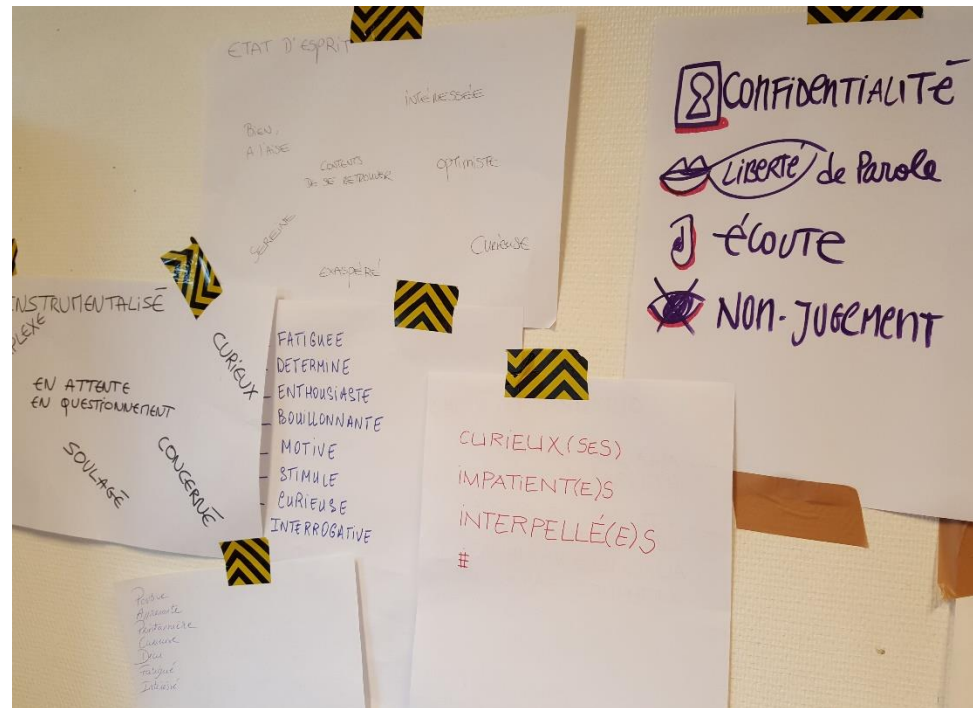 ETAT D'ESPRIT
INTÉRESSÉE
BIEN,
A L'AISE
CONTENTS
DE SE RETROUVER
OPTIMISTE
SEREINE
CURIEUSE
EXASPÉRÉ
CONFIDENTIALITÉ
LIBERTÉ de Parole
écoute
NON-JUGEMENT
INSTRUMENTALISÉ
PLEXÉ
CURIEUX
EN ATTENTE
EN QUESTIONNEMENT
SOULAGÉ
CONCERNÉ
FATIGUEE
DETERMINE
ENTHOUSIASTE
BOUILLONNANTE
MOTIVE
STIMULE
CURIEUSE
INTERROGATIVE
CURIEUX(SES)
IMPATIENT(E)S
INTERPELLÉ(E)S
#
Positive
Curieuse
Fatigué